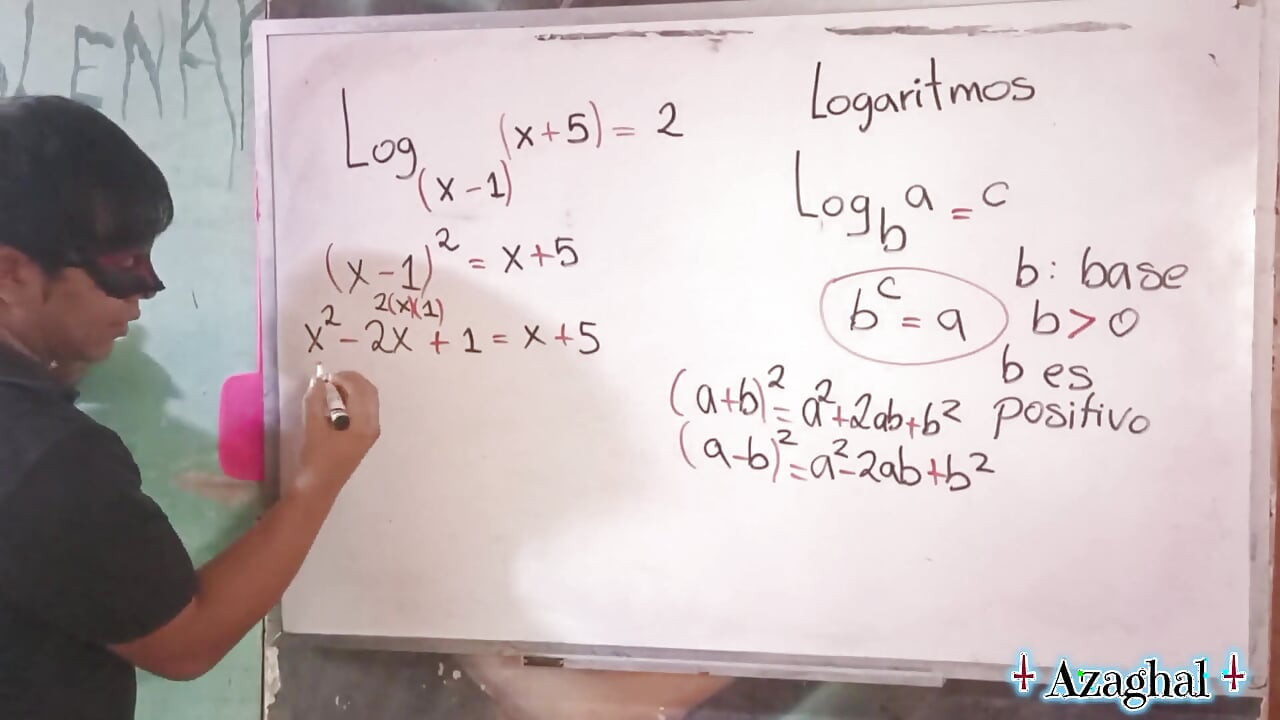 LENKA
Log(x-1)(x+5) = 2
(x-1)² = x+5
2(x)(1)
x² - 2x + 1 = x + 5
Logaritmos
Log_b a = c
b^c = a
b: base
b > 0
b es
positivo
(a+b)² = a² + 2ab + b²
(a-b)² = a² - 2ab + b²
Azaghal